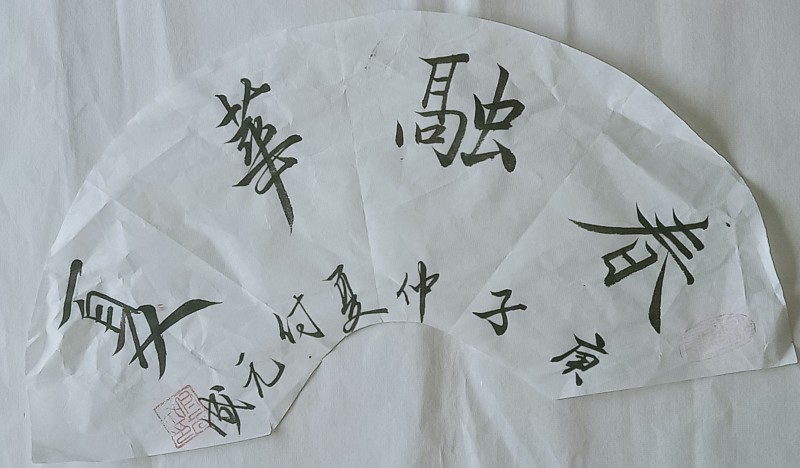 春融華夏
庚子仲夏付元盛